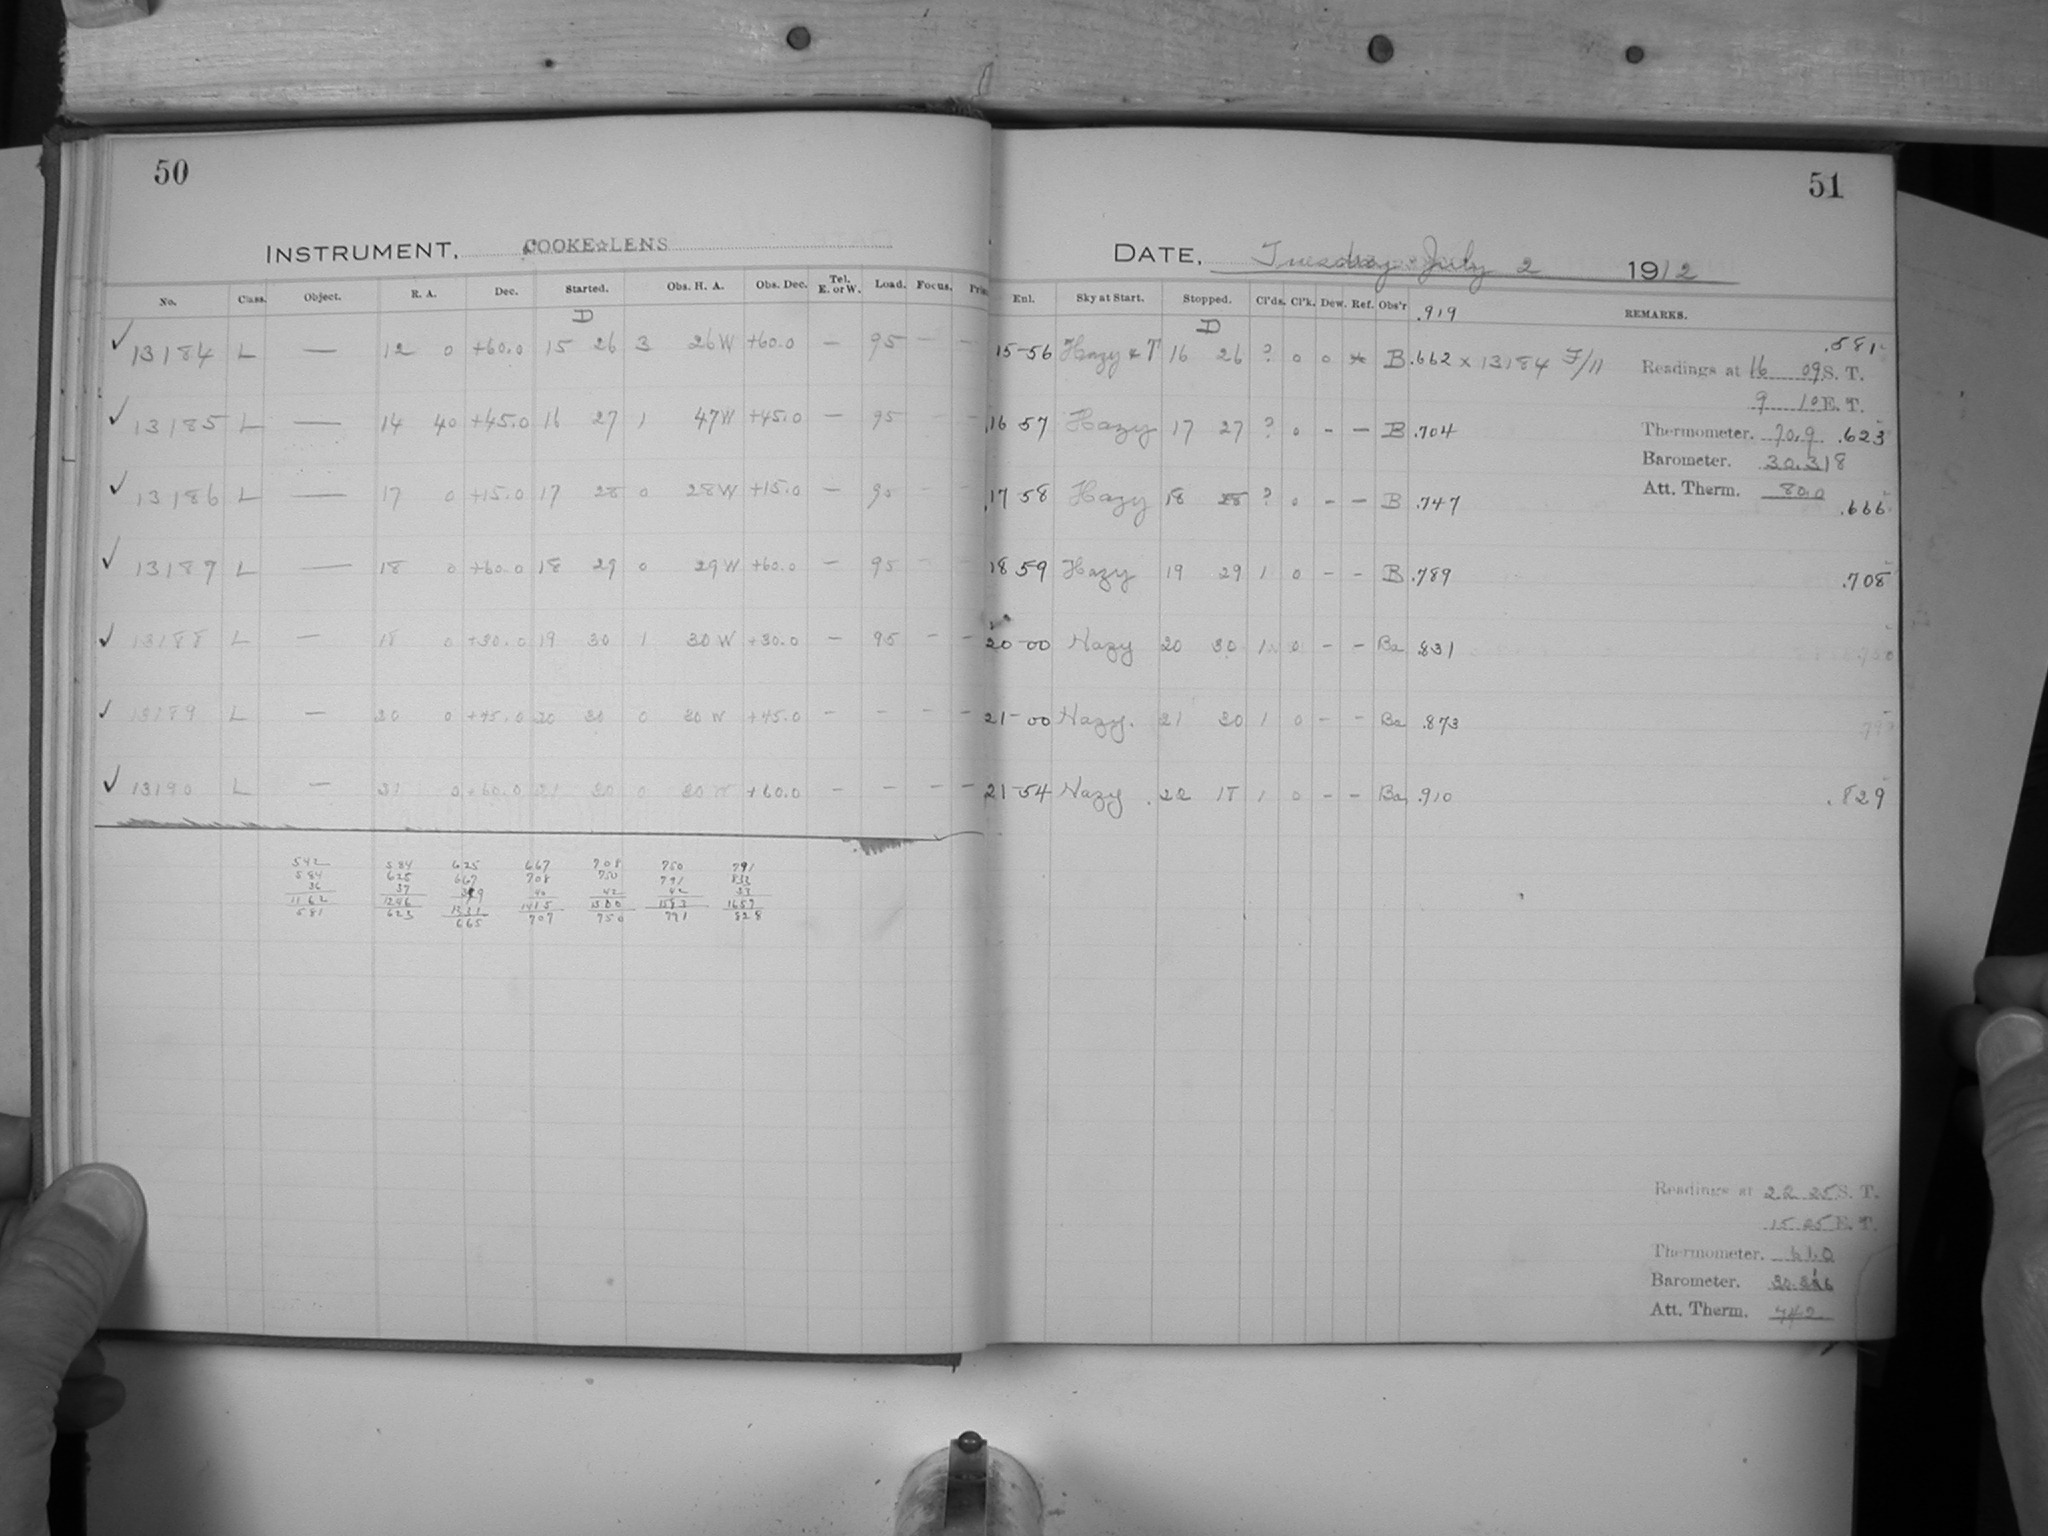 50
INSTRUMENT. COOKE☆LENS
No. Class. Object. R. A. Dec. Started. Obs. H. A. Obs. Dec. Tel. E. or W. Load. Focus.
D
✓ 13184 L — 12 0 +60.0 15 26 3 26W +60.0 — 95 — —
✓ 13185 L — 14 40 +45.0 16 27 1 47W +45.0 — 95 — —
✓ 13186 L — 17 0 +15.0 17 28 0 28W +15.0 — 95 — —
✓ 13187 L — 18 0 +60.0 18 29 0 29W +60.0 — 95 — —
✓ 13188 L — 18 0 +30.0 19 30 1 30W +30.0 — 95 — —
✓ 13189 L — 20 0 +45.0 20 30 0 30W +45.0 — — — —
✓ 13190 L — 21 0 +60.0 21 30 0 30W +60.0 — — — —
542 584 625 667 708 750 791
584 625 667 708 750 791 833
36 37 39 40 42 42 33
1162 1246 1331 1415 1500 1583 1657
581 623 665 707 750 791 828
51
DATE. Tuesday July 2 1912
Enl. Sky at Start. Stopped. Cl'ds. Cl'k. Dew. Ref. Obs'r .919 REMARKS.
D
15-56 Hazy & T 16 26 ? 0 0 B .662 x 13184 F/11 .581
Readings at 16 09 S. T.
9 10 E. T.
16 57 Hazy 17 27 ? 0 - - B .704 Thermometer. 70.9 .623
Barometer. 30.318
Att. Therm. 80.0
17 58 Hazy 18 28 ? 0 - - B .747 .666
18 59 Hazy 19 29 1 0 - - B .789 .708
20-00 Hazy 20 30 1 0 - - Ba .831 .750
21-00 Hazy. 21 30 1 0 - - Ba .873
21-54 Hazy 22 18 1 0 - - Ba .910 .829
Readings at 22 25 S. T.
15 25 E. T.
Thermometer. 61.0
Barometer.
Att. Therm. 74.2